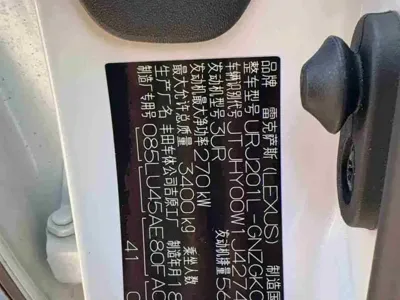 品牌 雷克萨斯 (LEXUS) 制造国
整车型号 URJ201L-GNZGKC
车辆识别代号 JTJHY00W1J4274
发动机型号 3UR 发动机排量 56
发动机最大净功率 270 kW
最大允许总质量 3400 kg 乘坐人数
生产厂名 丰田车体公司吉原工厂 制造年月 18
制造厂专用号 085LU45AE80FA0
41